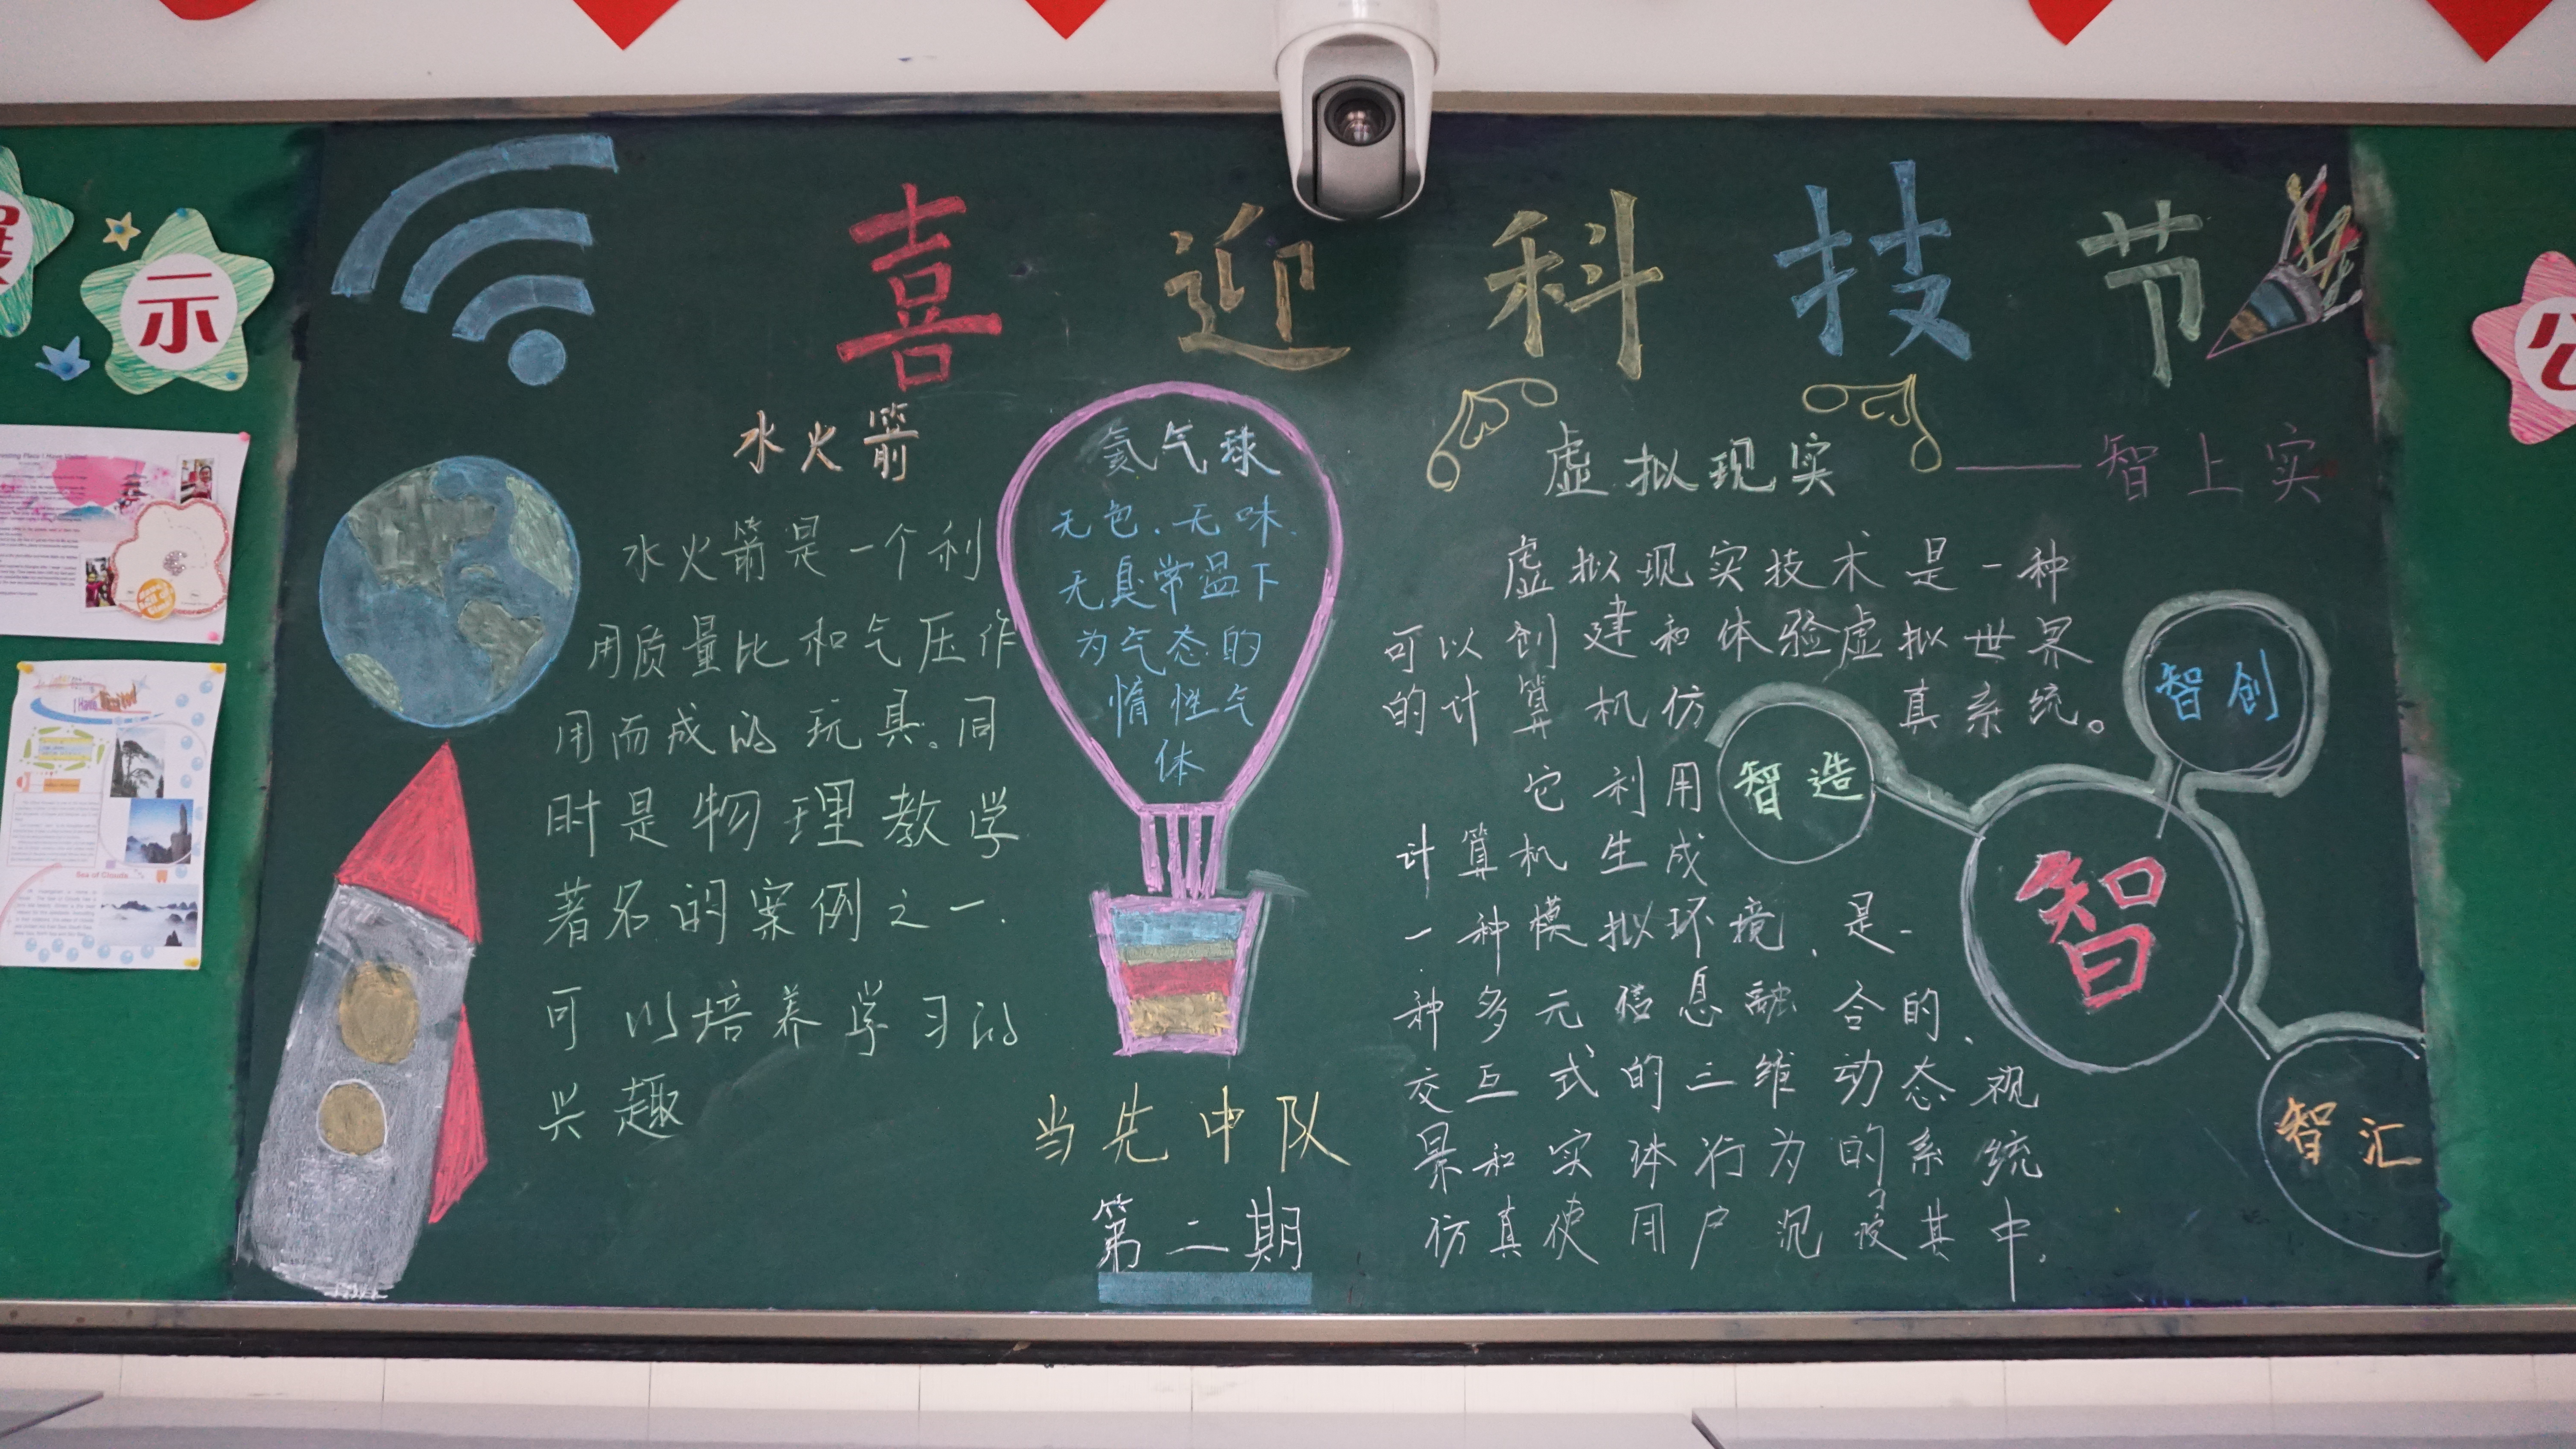 喜迎科技节
——智上实
展示
公
水火箭
水火箭是一个利
用质量比和气压作
用而成的玩具。同
时是物理教学
著名的案例之一.
可以培养学习的
兴趣
氦气球
无色、无味、
无臭常温下
为气态的
惰性气
体
当先中队
第二期
虚拟现实
虚拟现实技术是一种
可以创建和体验虚拟世界
的计算机仿真系统。
它利用
计算机生成
一种模拟环境、是一
种多元信息融合的、
交互式的三维动态视
景和实体行为的系统
仿真使用户沉浸其中.
智创
智造
智
智汇
I Have Visited
Sea of Clouds